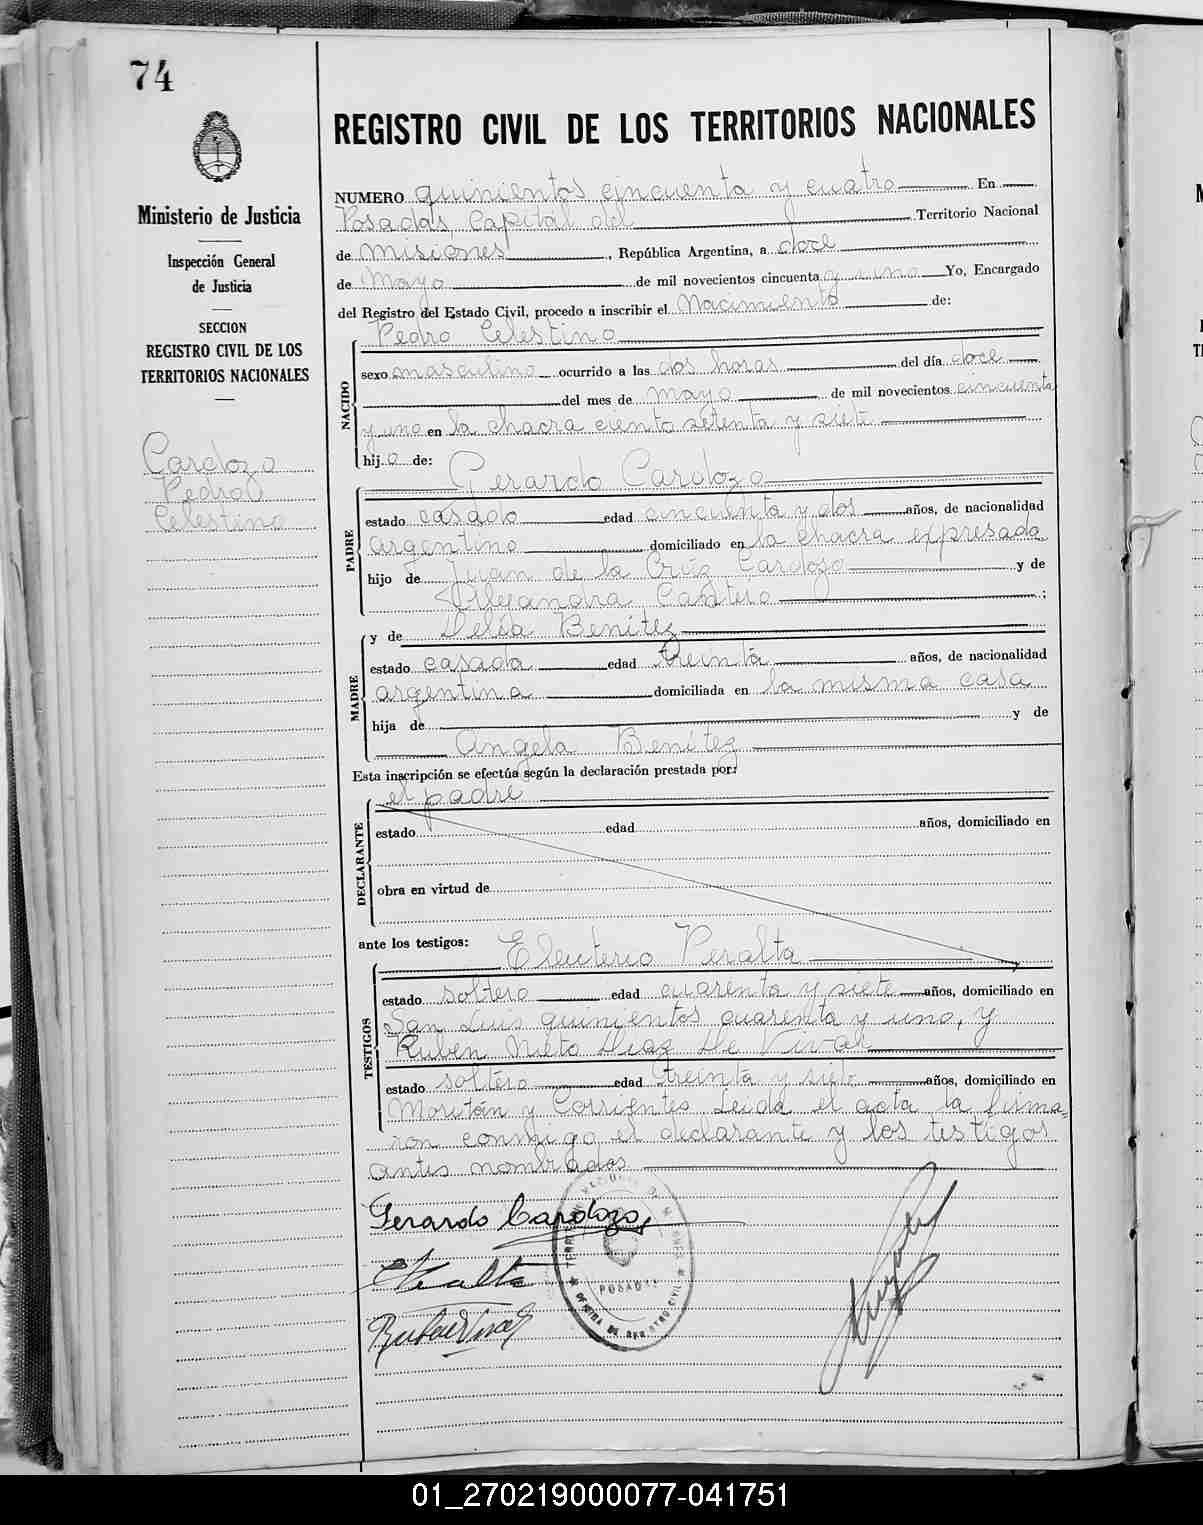 74
Ministerio de Justicia
Inspección General
de Justicia
SECCION
REGISTRO CIVIL DE LOS
TERRITORIOS NACIONALES
Cardozo
Pedro
Celestino
REGISTRO CIVIL DE LOS TERRITORIOS NACIONALES
NUMERO quinientos cincuenta y cuatro En
Posadas, Capital del Territorio Nacional
de Misiones, República Argentina, a doce
de Mayo de mil novecientos cincuenta y uno Yo, Encargado
del Registro del Estado Civil, procedo a inscribir el Nacimiento de:
NACIDO
Pedro Celestino
sexo masculino ocurrido a las dos horas del día doce
del mes de mayo de mil novecientos cincuenta
y uno en la chacra ciento setenta y siete
hijo de:
PADRE
Gerardo Cardozo
estado casado edad cincuenta y dos años, de nacionalidad
argentino domiciliado en la chacra expresada
hijo de Juan de la Cruz Cardozo y de
Alejandra Cantero ;
MADRE
y de Delia Benítez
estado casada edad treinta años, de nacionalidad
argentina domiciliada en la misma casa
hija de y de
Angela Benítez
Esta inscripción se efectúa según la declaración prestada por:
DECLARANTE
el padre
estado edad años, domiciliado en
obra en virtud de
ante los testigos:
TESTIGOS
Eleuterio Peralta
estado soltero edad cuarenta y siete años, domiciliado en
San Luis quinientos cuarenta y uno, y
Ruben Nieto Diaz De Vivar
estado soltero edad treinta y siete años, domiciliado en
Moritán y Corrientes Leida el acta la firma=
ron conmigo el declarante y los testigos
antes nombrados
Gerardo Cardozo
EPeralta
POSADAS
OFICINA DE REGISTRO CIVIL
01_270219000077-041751